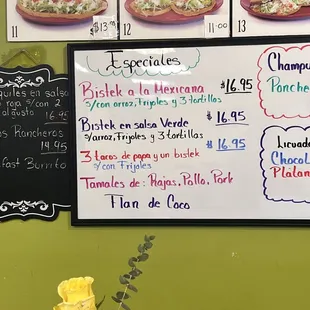 11
$13.
12
11.00
13
Especiales
Bistek a la Mexicana $16.95
s/con arroz, Frijoles y 3 tortillas
Bistek en salsa Verde $16.95
s/arroz, Frijoles y 3 tortillas
3 tacos de papa y un bistek $16.95
s/con Frijoles
Tamales de: Rajas, Pollo, Pork
Flan de Coco
Champu
Ponche
Licuado
Chocol
Platan
quiles en salsa
roja s/con 2
al gusto 16.95
os Rancheros
14.95
fast Burrito